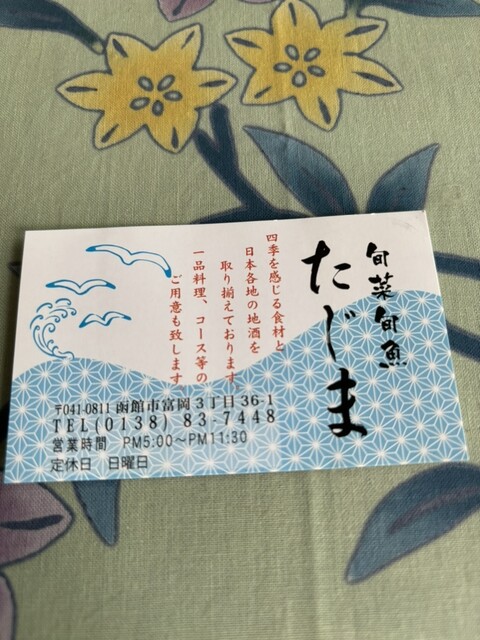 旬菜旬魚
たじま
四季を感じる食材と
日本各地の地酒を
取り揃えております
一品料理、コース等の
ご用意も致します
〒041-0811 函館市富岡3丁目36-1
TEL(0138) 83-7448
営業時間 PM5:00〜PM11:30
定休日 日曜日